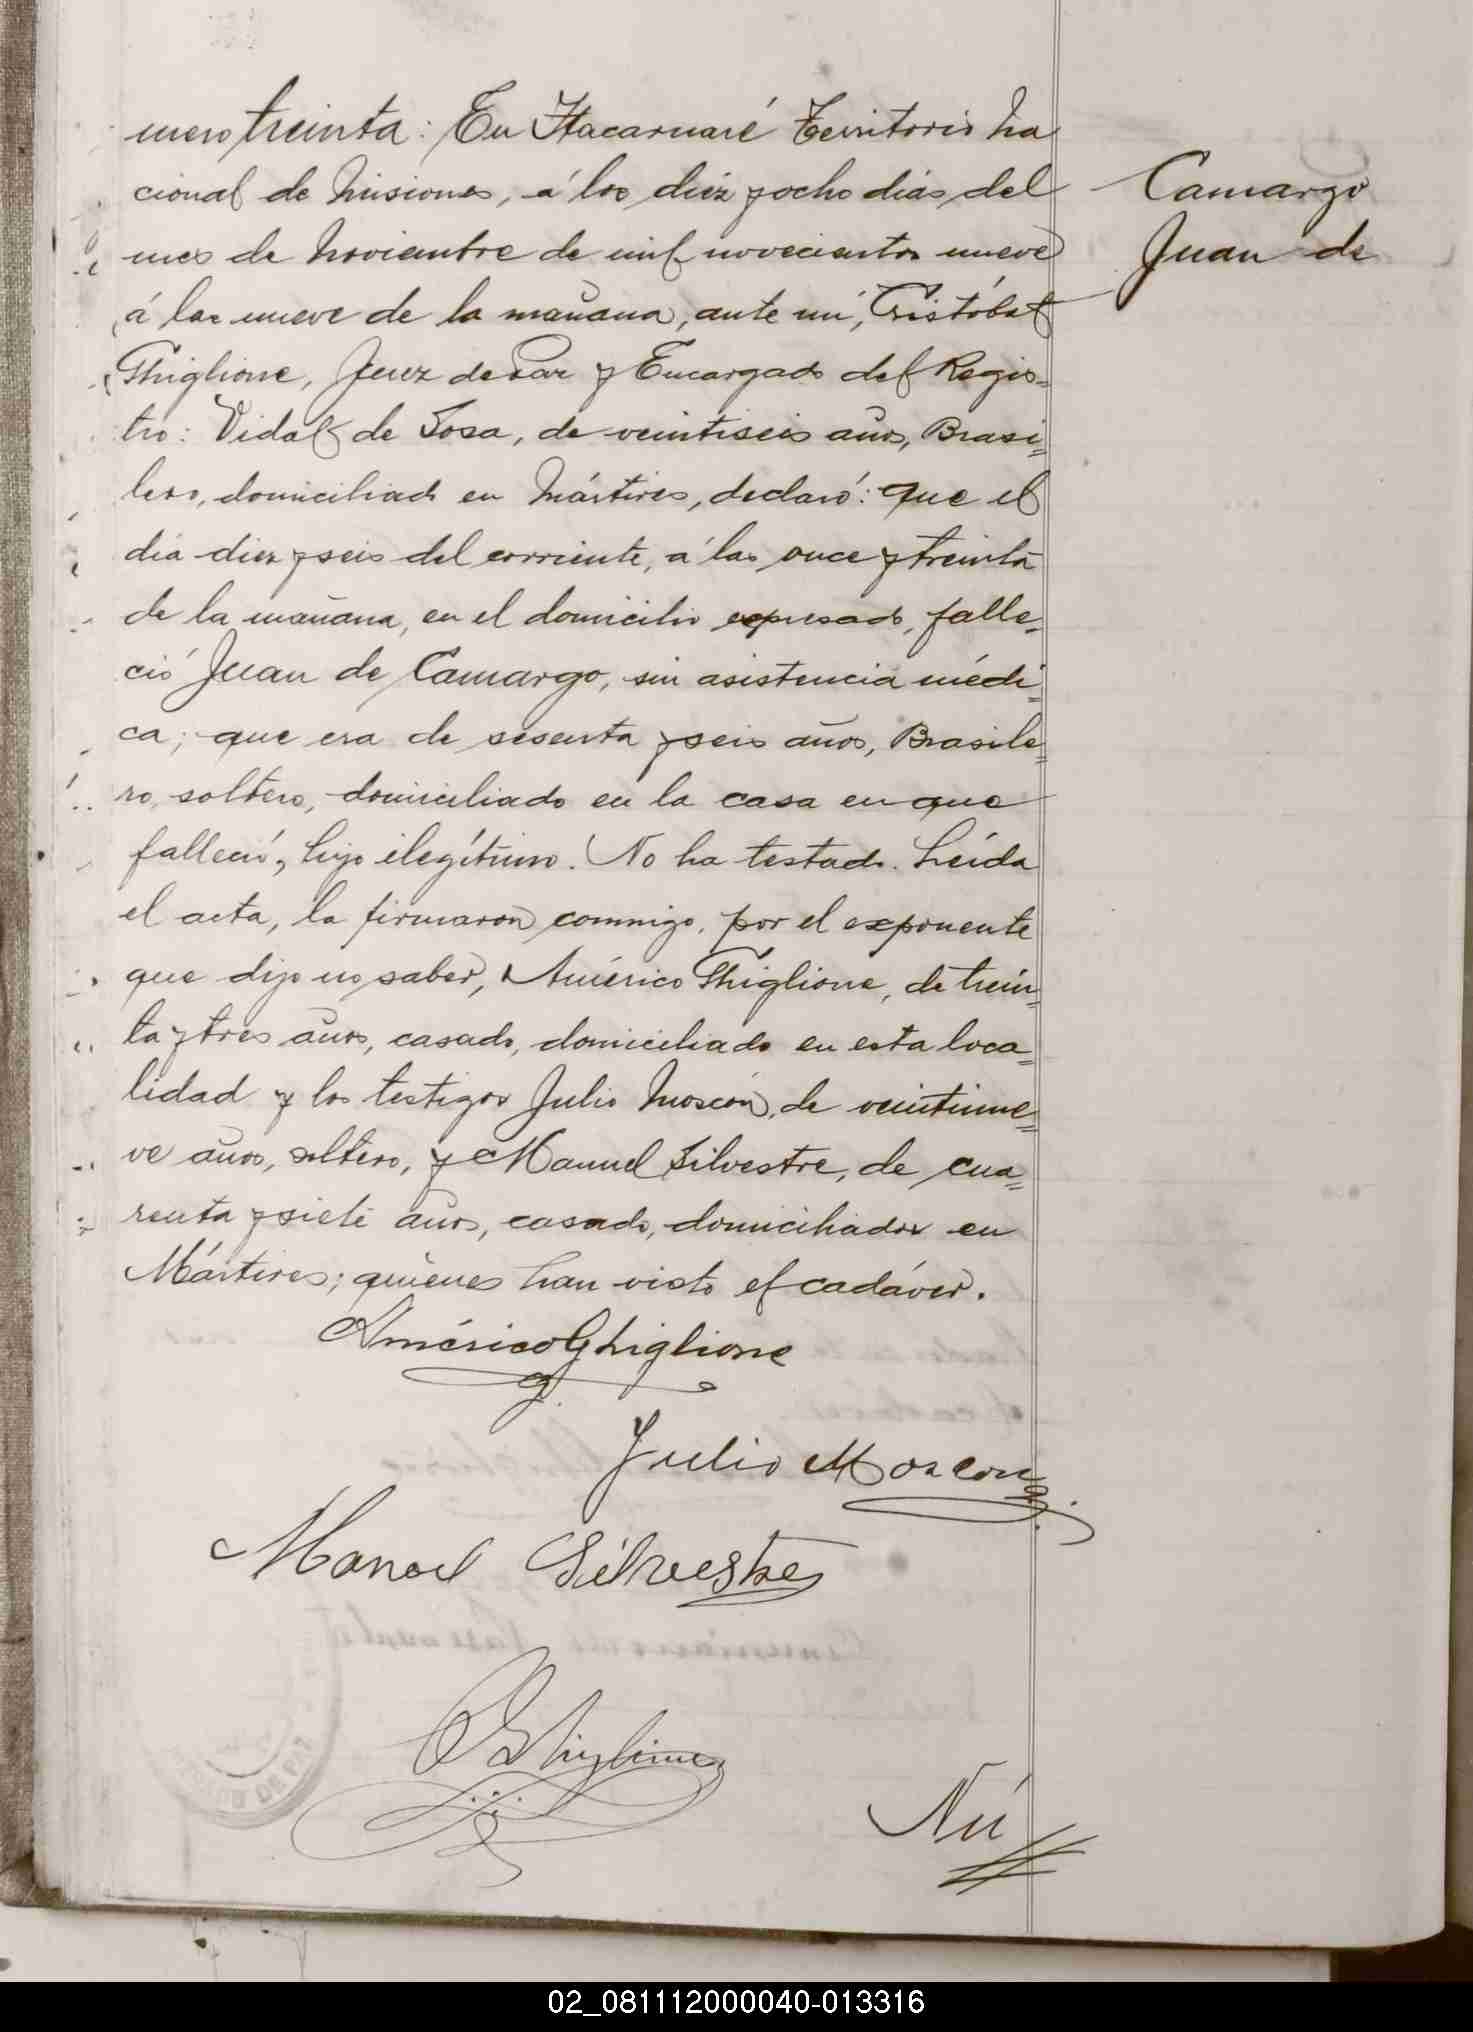 mero treinta: En Itacaruaré Territorio Na
cional de Misiones, á los diez y ocho dias del
mes de Noviembre de mil novecientos nueve
á las nueve de la mañana, ante mi, Cristóbal
Ghiglione, Juez de Paz y Encargado del Regis=
tro: Vidal de Sosa, de veintiseis años, Brasi=
lero, domiciliado en Mártires, declaró: que el
dia diez y seis del corriente, a las once y treinta
de la mañana, en el domicilio expresado, falle=
ció Juan de Camargo, sin asistencia médi=
ca; que era de sesenta y seis años, Brasile=
ro, soltero, domiciliado en la casa en que
falleció, hijo ilegítimo. No ha testado. Leída
el acta, la firmaron conmigo, por el exponente
que dijo no saber, Américo Ghiglione, de trein=
ta y tres años, casado, domiciliado en esta loca=
lidad y los testigos Julio Moscon, de veintinue=
ve años, soltero, y Manuel Silvestre, de cua=
renta y siete años, casado, domiciliados en
Mártires; quienes han visto el cadáver.
Camargo
Juan de
Américo Ghiglione
Julio Moscon
Manoel Silvestre
C Ghiglione
Nú
JUZGADO DE PAZ
02_081112000040-013316